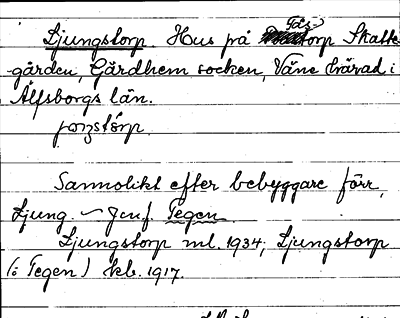 Ljungstorp. Hus på Tås-
torp Skatte-
gården, Gärdhem socken, Väne härad i
Älfsborgs län.
joŋstórp.
Sannolikt efter bebyggare förr,
Ljung. – Jmf. Tegen
Ljungstorp ml. 1934; Ljungstorp
(o Tegen) kb. 1917.